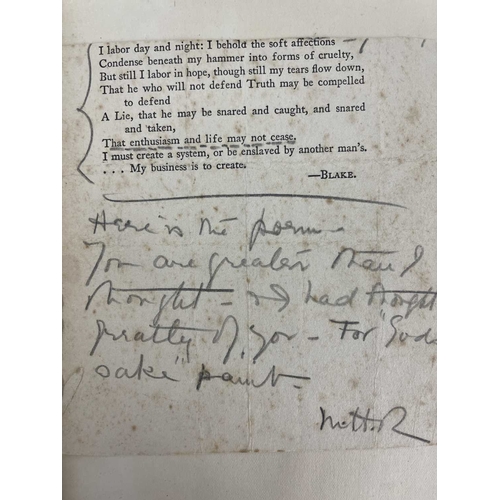 I labor day and night: I behold the soft affections
Condense beneath my hammer into forms of cruelty,
But still I labor in hope, though still my tears flow down,
That he who will not defend Truth may be compelled
to defend
A Lie, that he may be snared and caught, and snared
and taken,
That enthusiasm and life may not cease.
I must create a system, or be enslaved by another man's.
. . . My business is to create.
—BLAKE.
Here is the poem—
You are greater than I
thought — & I had thought
greatly of you — For "Gods
sake" paint—